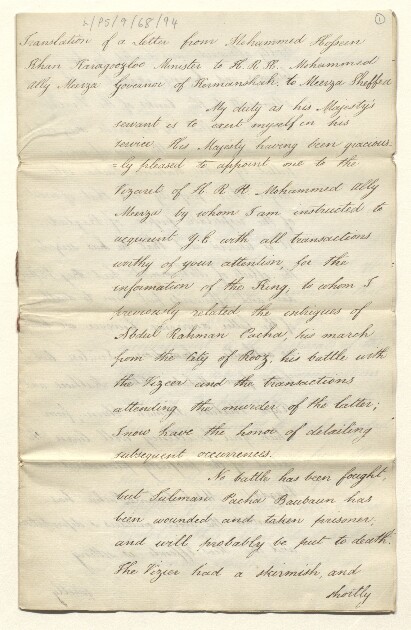 L/PS/9/68/94
1
Translation of a letter from Mohammed Hossein
Khan Karagoozloo Minister to H. R. H. Mohammed
Ally Meerza Governor of Kermanshah, to Meerza Sheffea
My duty as his Majesty's
servant is to exert myself in his
service His Majesty having been gracious
=ly pleased to appoint me to the
Vizaret of H. R. H. Mohammed Ally
Meerza by whom I am instructed to
acquaint Y. E. with all transactions
worthy of your attention, for the
information of the King, to whom I
previously related the intrigues of
Abdul Rahman Pacha, his march
from the City of Rooz, his battle with
the Vizeer and the transactions
attending the murder of the latter;
I now have the honor of detailing
subsequent occurrences.
No battle has been fought,
but Suleman Pacha Baubaun has
been wounded and taken prisoner,
and will probably be put to death.
The Vizier had a skirmish, and
shortly